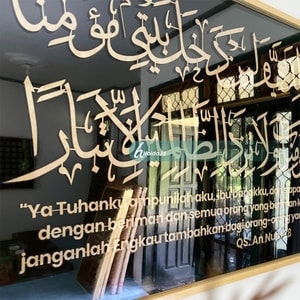 دخل بيتي مؤمنا
ولا تزد الظلمين إلا تبارا
"Ya Tuhanku, ampunilah aku, ibu bapakku, dan
dengan beriman dan semua orang yang beriman
janganlah Engkau tambahkan bagi orang-orang
QS. An Nuh: 28